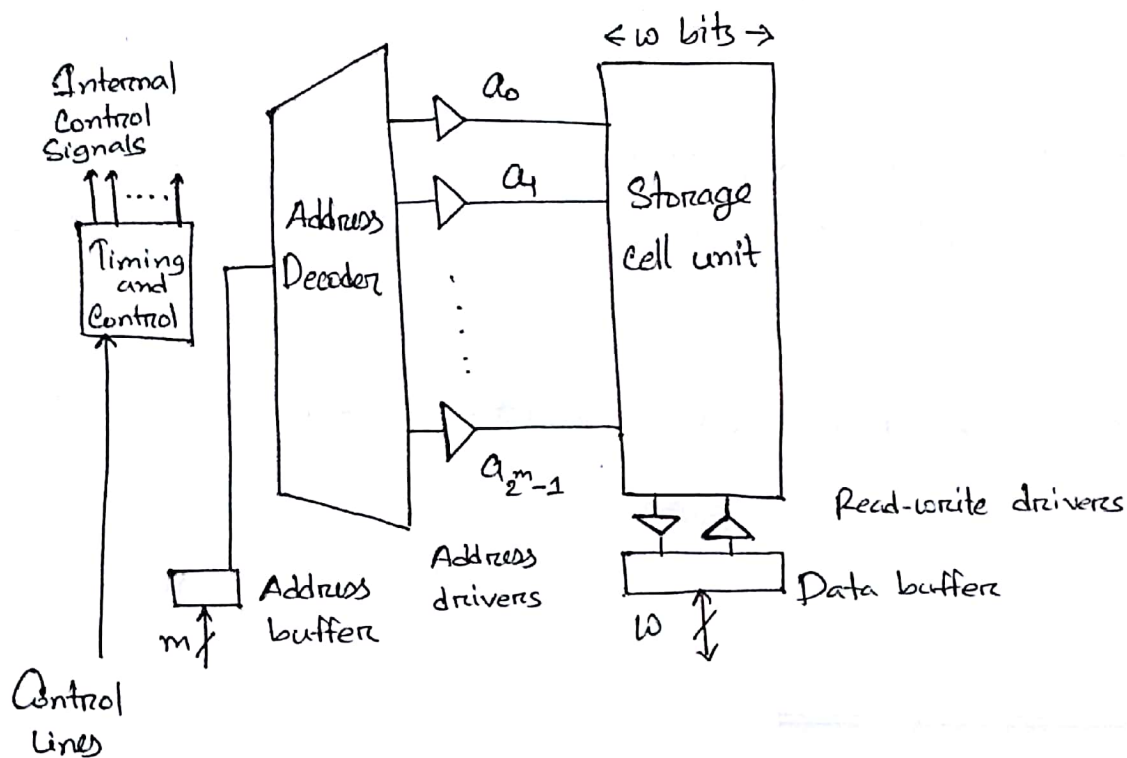 ← w bits →
Internal
Control
Signals
.....
Timing
and
Control
Address
Decoder
a₀
a₁
a₂ᵐ₋₁
Storage
cell unit
Read-write drivers
Address
drivers
Data buffer
w
Address
buffer
m
Control
Lines